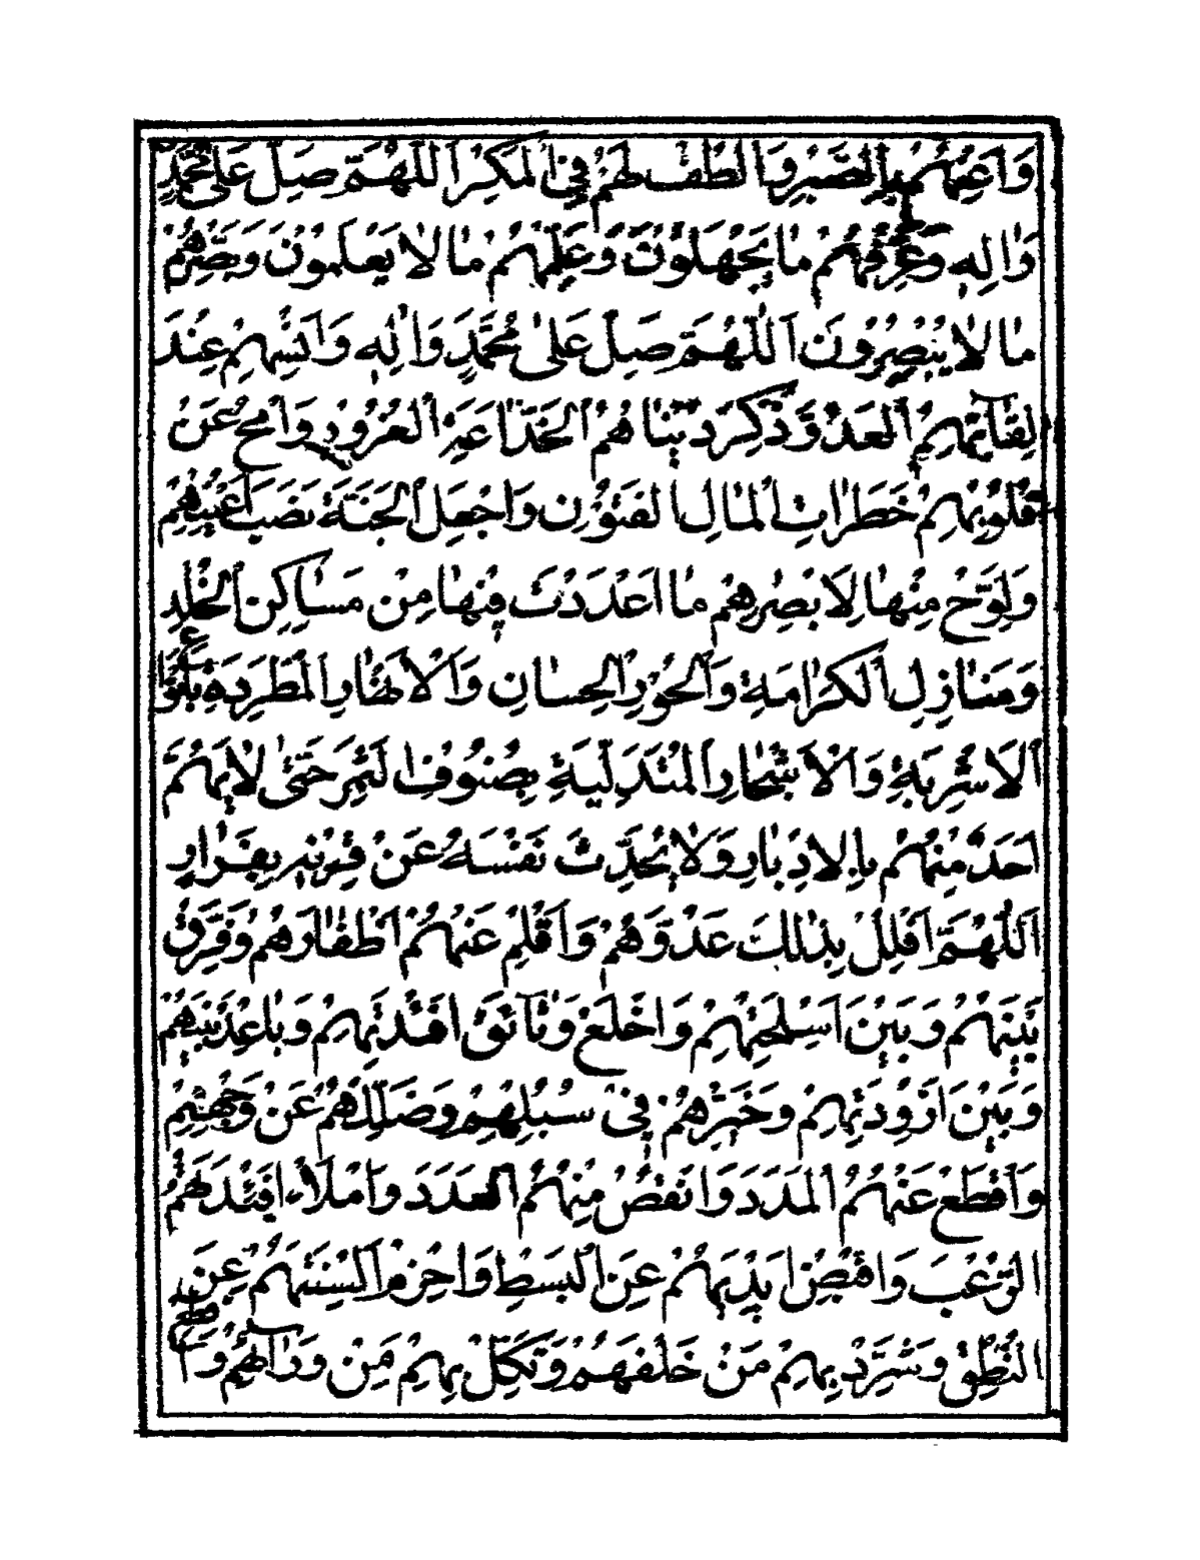 وَاَعِنْهُمْ بِالصَّبْرِ وَالْطُفْ لَهُمْ فِى الْمَكْرِ اَللّٰهُمَّ صَلِّ عَلٰى مُحَمَّدٍ
وَاٰلِهٖ وَعَرِّفْهُمْ مَا يَجْهَلُوْنَ وَعَلِّمْهُمْ مَا لَا يَعْلَمُوْنَ وَبَصِّرْهُمْ
مَا لَا يُبْصِرُوْنَ اَللّٰهُمَّ صَلِّ عَلٰى مُحَمَّدٍ وَاٰلِهٖ وَاَنْسِهِمْ عِنْدَ
لِقَآئِهِمُ الْعَدُوَّ ذِكْرَ دُنْيَاهُمُ الْخَدَّاعَةِ الْغَرُوْرِ وَامْحُ عَنْ
قُلُوْبِهِمْ خَطَرَاتِ الْمَالِ الْفَتُوْنِ وَاجْعَلِ الْجَنَّةَ نَصْبَ اَعْيُنِهِمْ
وَلَوِّحْ مِنْهَا لِاَبْصٰرِهِمْ مَا اَعْدَدْتَ فِيْهَا مِنْ مَسَاكِنِ الْخُلْدِ
وَمَنَازِلِ الْكَرَامَةِ وَالْحُوْرِ الْحِسَانِ وَالْاَنْهَارِ الْمُطَّرِدَةِ بِاَنْوَاعِ
الْاَشْرِبَةِ وَالْاَشْجَارِ الْمُتَدَلِّيَةِ بِصُنُوْفِ الثَّمَرِ حَتّٰى لَا يَهُمَّ
اَحَدٌ مِنْهُمْ بِالْاِدْبَارِ وَلَا يُحَدِّثَ نَفْسَهُ عَنْ قِرْنِهٖ بِفِرَارٍ
اَللّٰهُمَّ افْلُلْ بِذٰلِكَ عَدُوَّهُمْ وَاَقْلِمْ عَنْهُمْ اَظْفَارَهُمْ وَفَرِّقْ
بَيْنَهُمْ وَبَيْنَ اَسْلِحَتِهِمْ وَاخْلَعْ وَثَآئِقَ اَفْئِدَتِهِمْ وَبَاعِدْ بَيْنَهُمْ
وَبَيْنَ اَزْوِدَتِهِمْ وَحَيِّرْهُمْ فِىْ سُبُلِهِمْ وَضَلِّلْهُمْ عَنْ وَجْهِهِمْ
وَاقْطَعْ عَنْهُمُ الْمَدَدَ وَانْقُصْ مِنْهُمُ الْعَدَدَ وَامْلَأْ اَفْئِدَتَهُمُ
الرُّعْبَ وَاقْبِضْ اَيْدِيَهُمْ عَنِ الْبَسْطِ وَاخْزِمْ اَلْسِنَتَهُمْ عَنِ
النُّطْقِ وَشَرِّدْ بِهِمْ مَنْ خَلْفَهُمْ وَنَكِّلْ بِهِمْ مَنْ وَرَآءَهُمْ وَاقْطَعْ